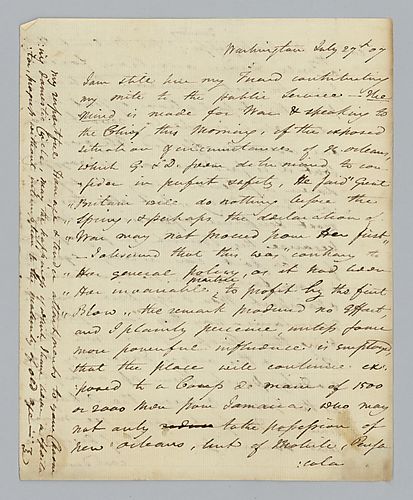 Washington July 27th 07
I am still here my Friend contributing
my mite to the public Service — The
Mind is made for War & speaking to
the Chief this Morning, of the exposed
situation & circumstances of N. Orleans,
which G. & D. seem determined to con-
sider in perfect safety, He said "Great
"Britain will do nothing before the
"Spring, & perhaps the declaration of
"War may not proceed from Her first"
— I observed that this was "contrary to
"Her general policy, as it had been
"Her invariable practice, to profit by the first
"Blow" the remark produced no effect
and I plainly perceive, unless some
more powerful influence is employed
that the place will continue ex-
posed to a Coup de main of 1500
or 2000 Men from Jamaica, who may
not only to the possession of
New Orleans, but of Mobile, Pensa
:cola
my respectful Homage & tender attachments to your
my domestic
progress without injury to the of old age —